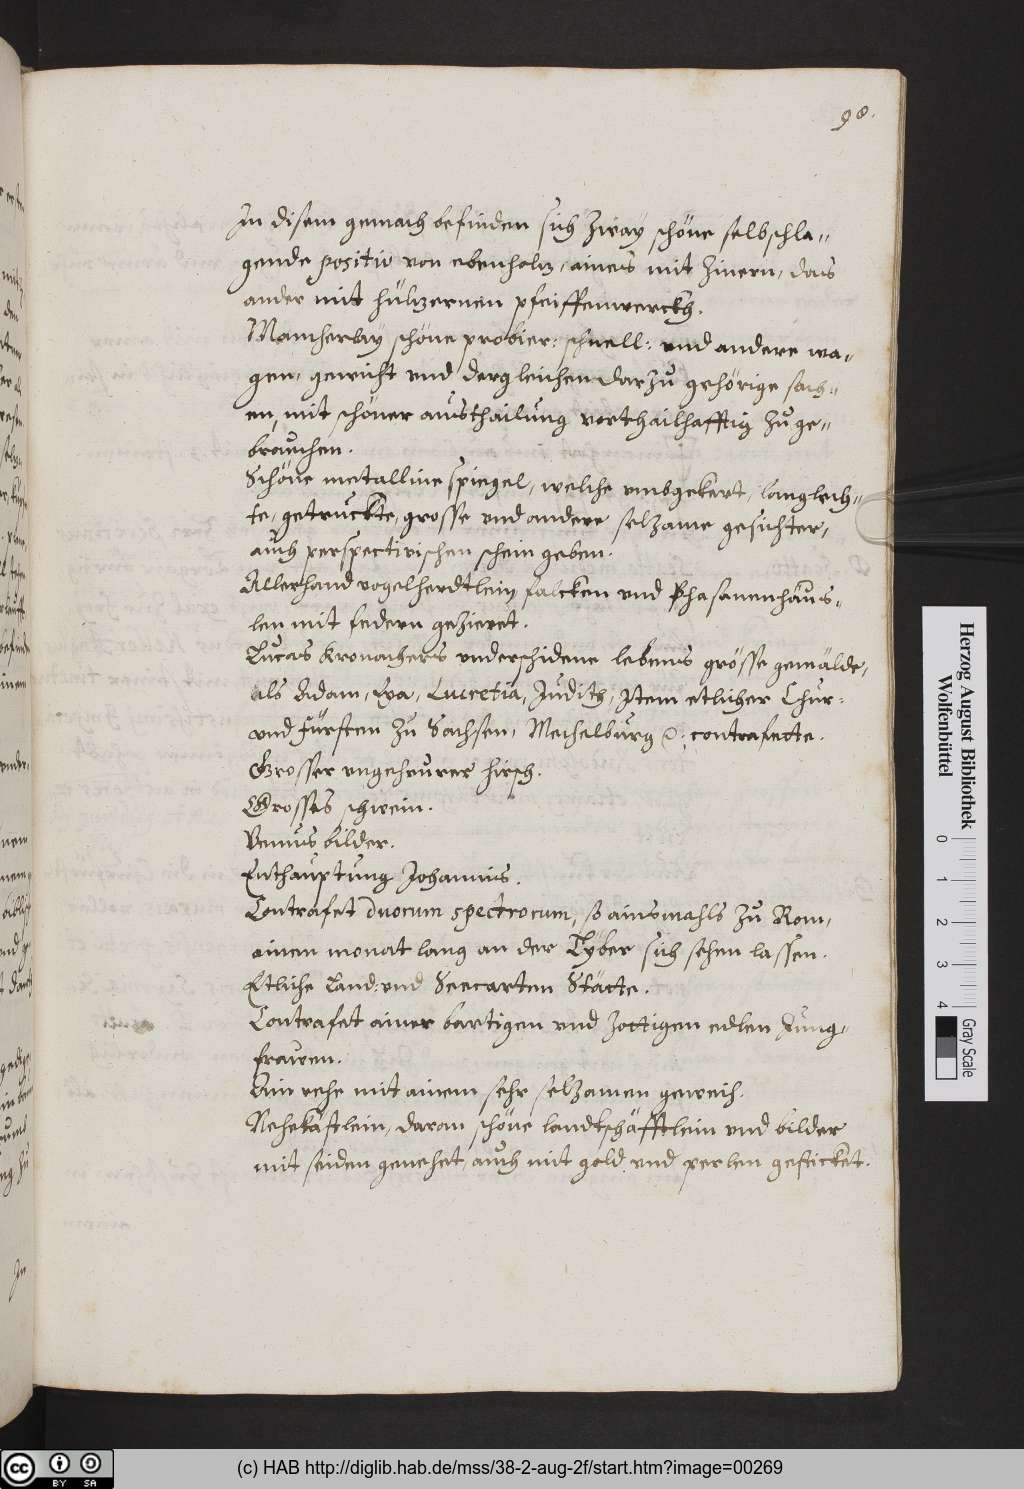 98.
In disem gemach befinden sich zway schöne selbschla„
gende positiv von ebenholtz, aines mit zinern, das
ander mit hültzernen pfeiffenwerckh.
Mancherlay schöne probier: schnell: und andere wa„
gen, gewicht und dergleichen darzu gehörige sach„
en, mit schöner austhailung vorthailhafftig zu ge„
brauchen.
Schöne metalline spiegel, welche umbgekert, langlech„
te, getruckte, grosse und andere selzame gesichter,
auch perspectivischen schein geben.
Allerhand vogelherdtlein falcken und Phasanenhäus„
len mit federn gezieret.
Lucas Kronachers underschidene lebens grösse gemälde,
als Adam, Eva, Lucretia, Judith, Item etlicher Chur:
und Fürsten zu Sachsen, Mechelburg &: contrafecte.
Grosser ungeheurer hirsch.
Grosses schwein.
Venus bilder.
Enthauptung Johannis.
Contrafet duorum spectrorum, so ainsmahls zu Rom,
ainen monat lang an der Tyber sich sehen lassen.
Etliche Land: und Seecarten Stätte.
Contrafet ainer bartigen und zottigen edlen Jung„
frawen.
Ain rehe mit ainem sehr selzamen geweih.
Nehekästlein, daran schöne landtschäfftlein und bilder
mit seiden genehet, auch mit gold und perlen gestickhet.
Herzog August Bibliothek
Wolfenbüttel
0 1 2 3 4
Gray Scale
cc BY SA
(c) HAB http://diglib.hab.de/mss/38-2-aug-2f/start.htm?image=00269